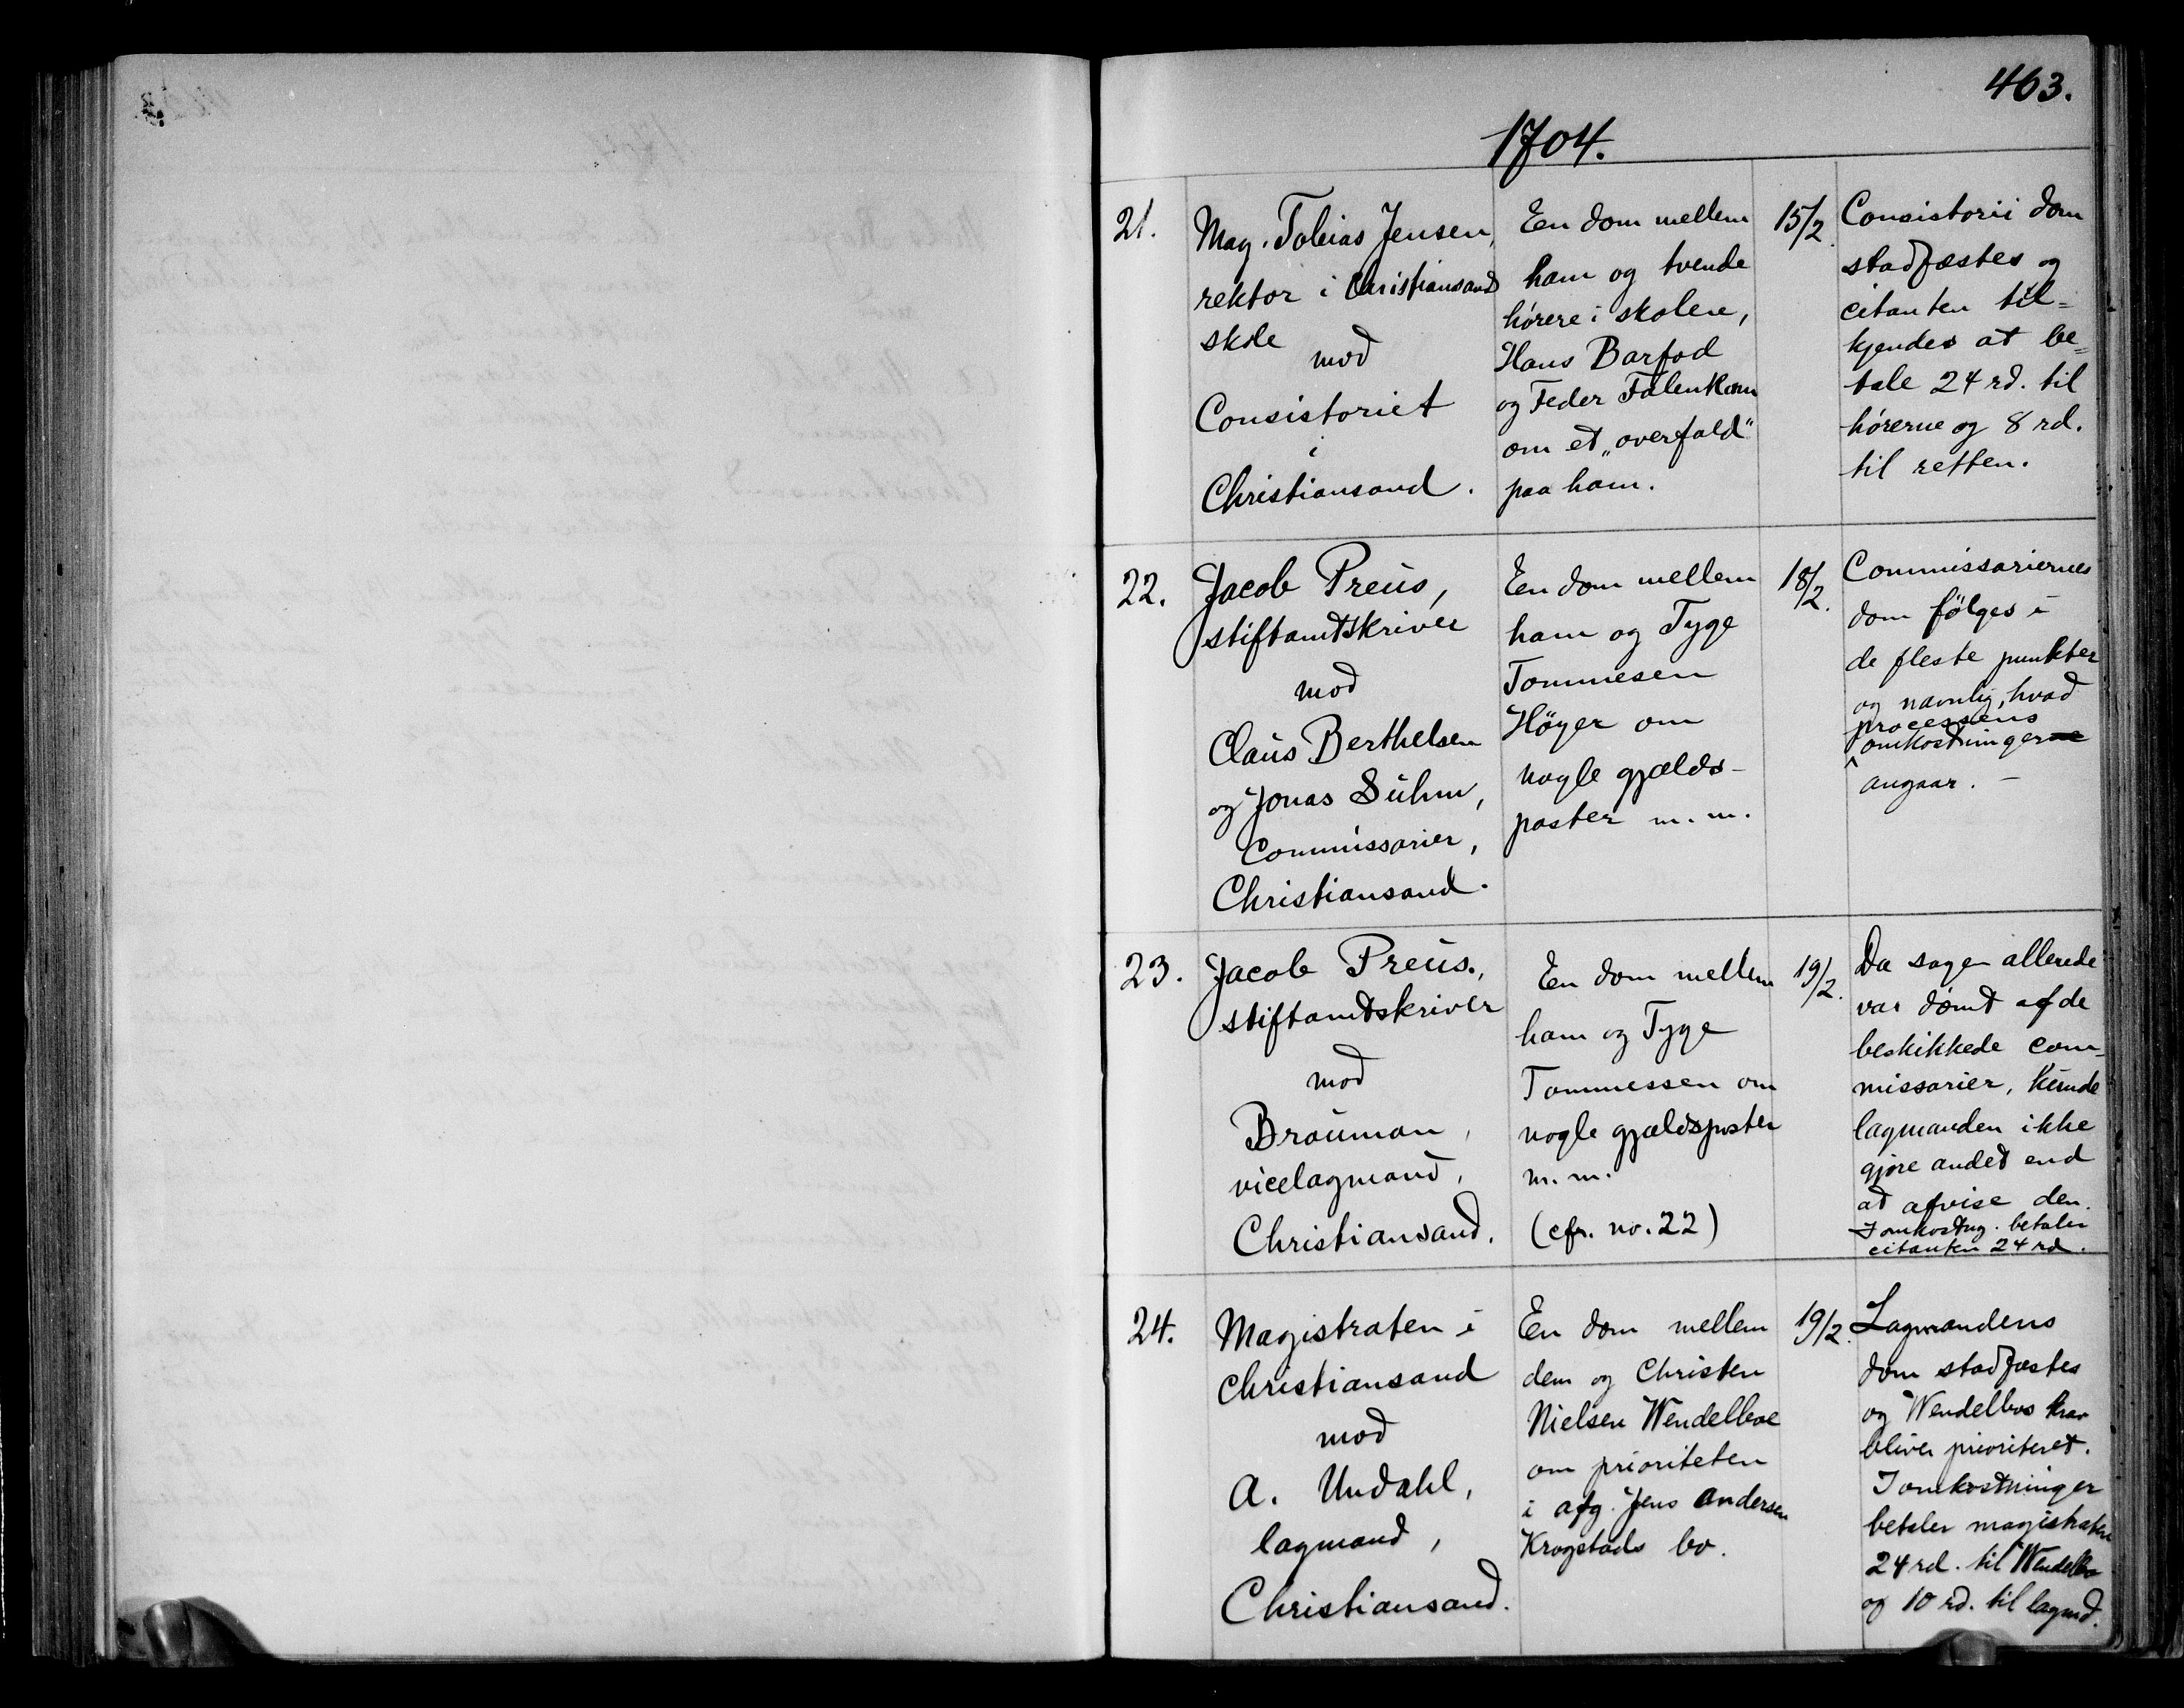 463.
1704.
21.
Mag. Tobias Jensen,
rektor i Christiansands
skole
mod
Consistoriet
i
Christiansand.
En dom mellem
ham og tvende
hørere i skolen,
Hans Barfod
og Feder Falenkam
om et „overfald"
paa ham.
15/2.
Consistorii dom
stadfæstes og
citanten til=
kjendes at be=
tale 24 rd. til
hørerne og 8 rd.
til retten.
22.
Jacob Preus,
stiftamtskriver
mod
Claus Berthelsen
og Jonas Suhm,
Commissarier,
Christiansand.
En dom mellem
ham og Tyge
Tommesen
Høyer om
nogle gjælds-
poster m. m.
18/2.
Commissariernes
dom følges i
de fleste punkter
og navnlig, hvad
processens
omkostninger
angaar. –
23.
Jacob Preus.,
stiftamtskriver
mod
Brouman,
vicelagmand,
Christiansand.
En dom mellem
ham og Tyge
Tommessen om
nogle gjældsposter
m. m.
(cfr. no. 22)
19/2.
Da sagen allerede
var dømt af de
beskikkede com-
missarier, kunde
lagmanden ikke
gjøre andet end
at afvise den.
I omkostng. betaler
citanten 24 rd.
24.
Magistraten i
Christiansand
mod
A. Undahl,
lagmand,
Christiansand.
En dom mellem
dem og Christen
Nielsen Wendelboe
om prioriteten
i afg. Jens Andersen
Krogstads bo.
19/2.
Lagmandens
dom stadfæstes
og Wendelbos krav
bliver prioriteret.
I omkostninger
betaler magistraten
24 rd. til Wendelbo
og 10 rd. til lagmd.